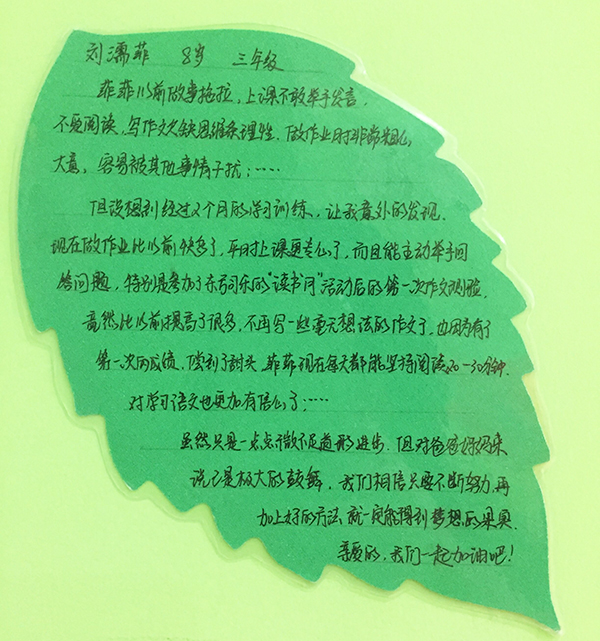 刘濡菲 8岁 三年级
菲菲以前做事拖拉,上课不敢举手发言,
不爱阅读,写作文欠缺思维条理性。做作业时非常粗心
大意,容易被其他事情干扰;……
但没想到经过2个月的学习训练,让我意外的发现,
现在做作业比以前快多了,平时上课更专心了,而且能主动举手回
答问题,特别是参加了东方同乐的“读书月”活动后的第一次作文测验,
竟然比以前提高了很多,不再写一些毫无想法的作文了,也因为有了
第一次的成绩,偿到了甜头,菲菲现在每天都能坚持阅读20-30分钟,
对学习语文也更加有信心了;……
虽然只是一点点微不足道的进步,但对爸爸妈妈来
说已是极大的鼓舞,我们相信只要不断努力,再
加上好的方法,就一定能得到梦想的果实。
亲爱的,我们一起加油吧!